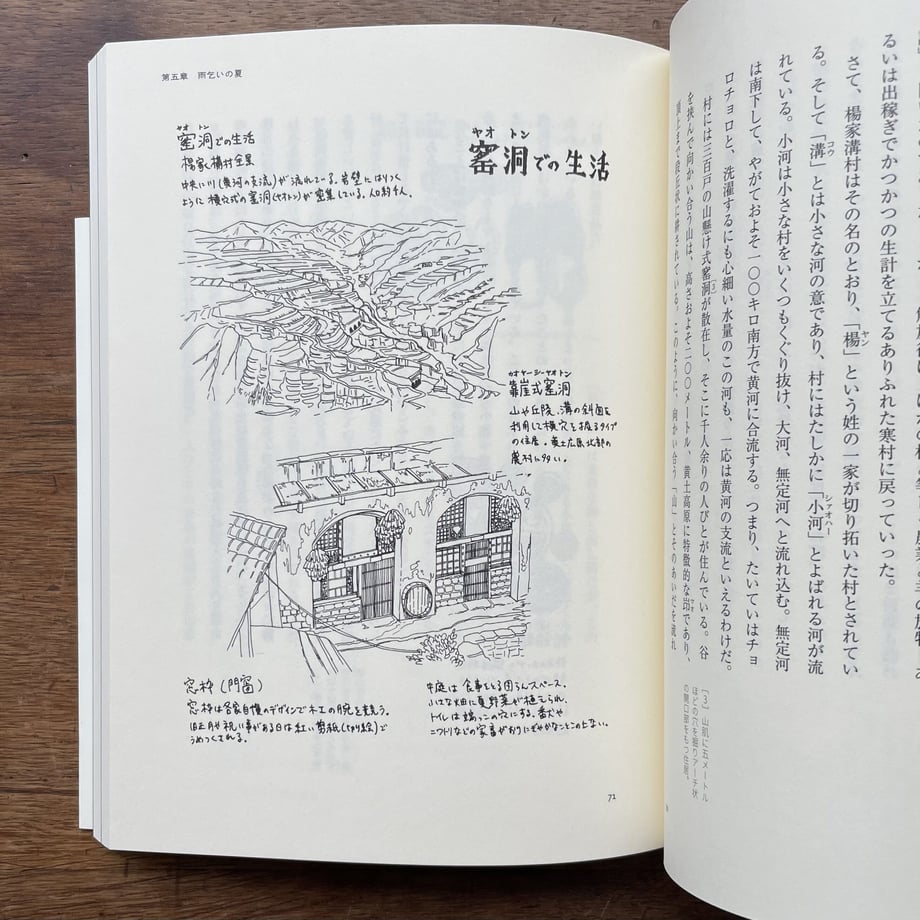 第五章　雨乞いの夏
ヤオトン
窑洞での生活
ヤオ　トン
窑洞での生活
楊家溝村全景
中央に川(黄河の支流)が流れている。岩壁にはりつく
ように横穴式の窑洞(ヤオトン)が密集している。人口約千人。
カオヤーシーヤオトン
靠崖式窑洞
山や丘陵、溝の斜面を
利用して横穴を掘るタイプ
の住居。黄土広原北部の
農村に多い。
窓枠(門窗)
窓枠は各家自慢のデザインで木工の腕を競う。
旧正月や祝い事がある日は紅い剪紙(切り絵)で
うめつくされる。
中庭は食事をとる団らんスペース。
小さな畑に夏野菜が植えられ、
トイレは端っこの穴にする。番犬や
ニワトリなどの家畜がおりにぎやかなことこの上ない。
71
るいは出稼ぎでかつかつの生計を立てるありふれた寒村に戻っていった。
さて、楊家溝村はその名のとおり、「楊」という姓の一家が切り拓いた村とされてい
ヤン
る。そして「溝」とは小さな河の意であり、村にはたしかに「小河」とよばれる河が流
コウ
シァオハー
れている。小河は小さな村をいくつもくぐり抜け、大河、無定河へと流れ込む。無定河
は南下して、やがておよそ一〇〇キロ南方で黄河に合流する。つまり、たいていはチョ
ロチョロと、洗濯するにも心細い水量のこの河も、一応は黄河の支流といえるわけだ。
村には三百戸の山懸け式窑洞[3]が散在し、そこに千人余りの人びとが住んでいる。谷
を挟んで向かい合う山は、高さおよそ二〇〇メートル、黄土高原に特徴的な峁であり、
マオ
頂上まで段丘状に耕されている。このように、向かい合う「山」とそのあいだを流れ
[3]　山肌に五メートル
ほどの穴を掘りアーチ状
の開口部をもつ住居。